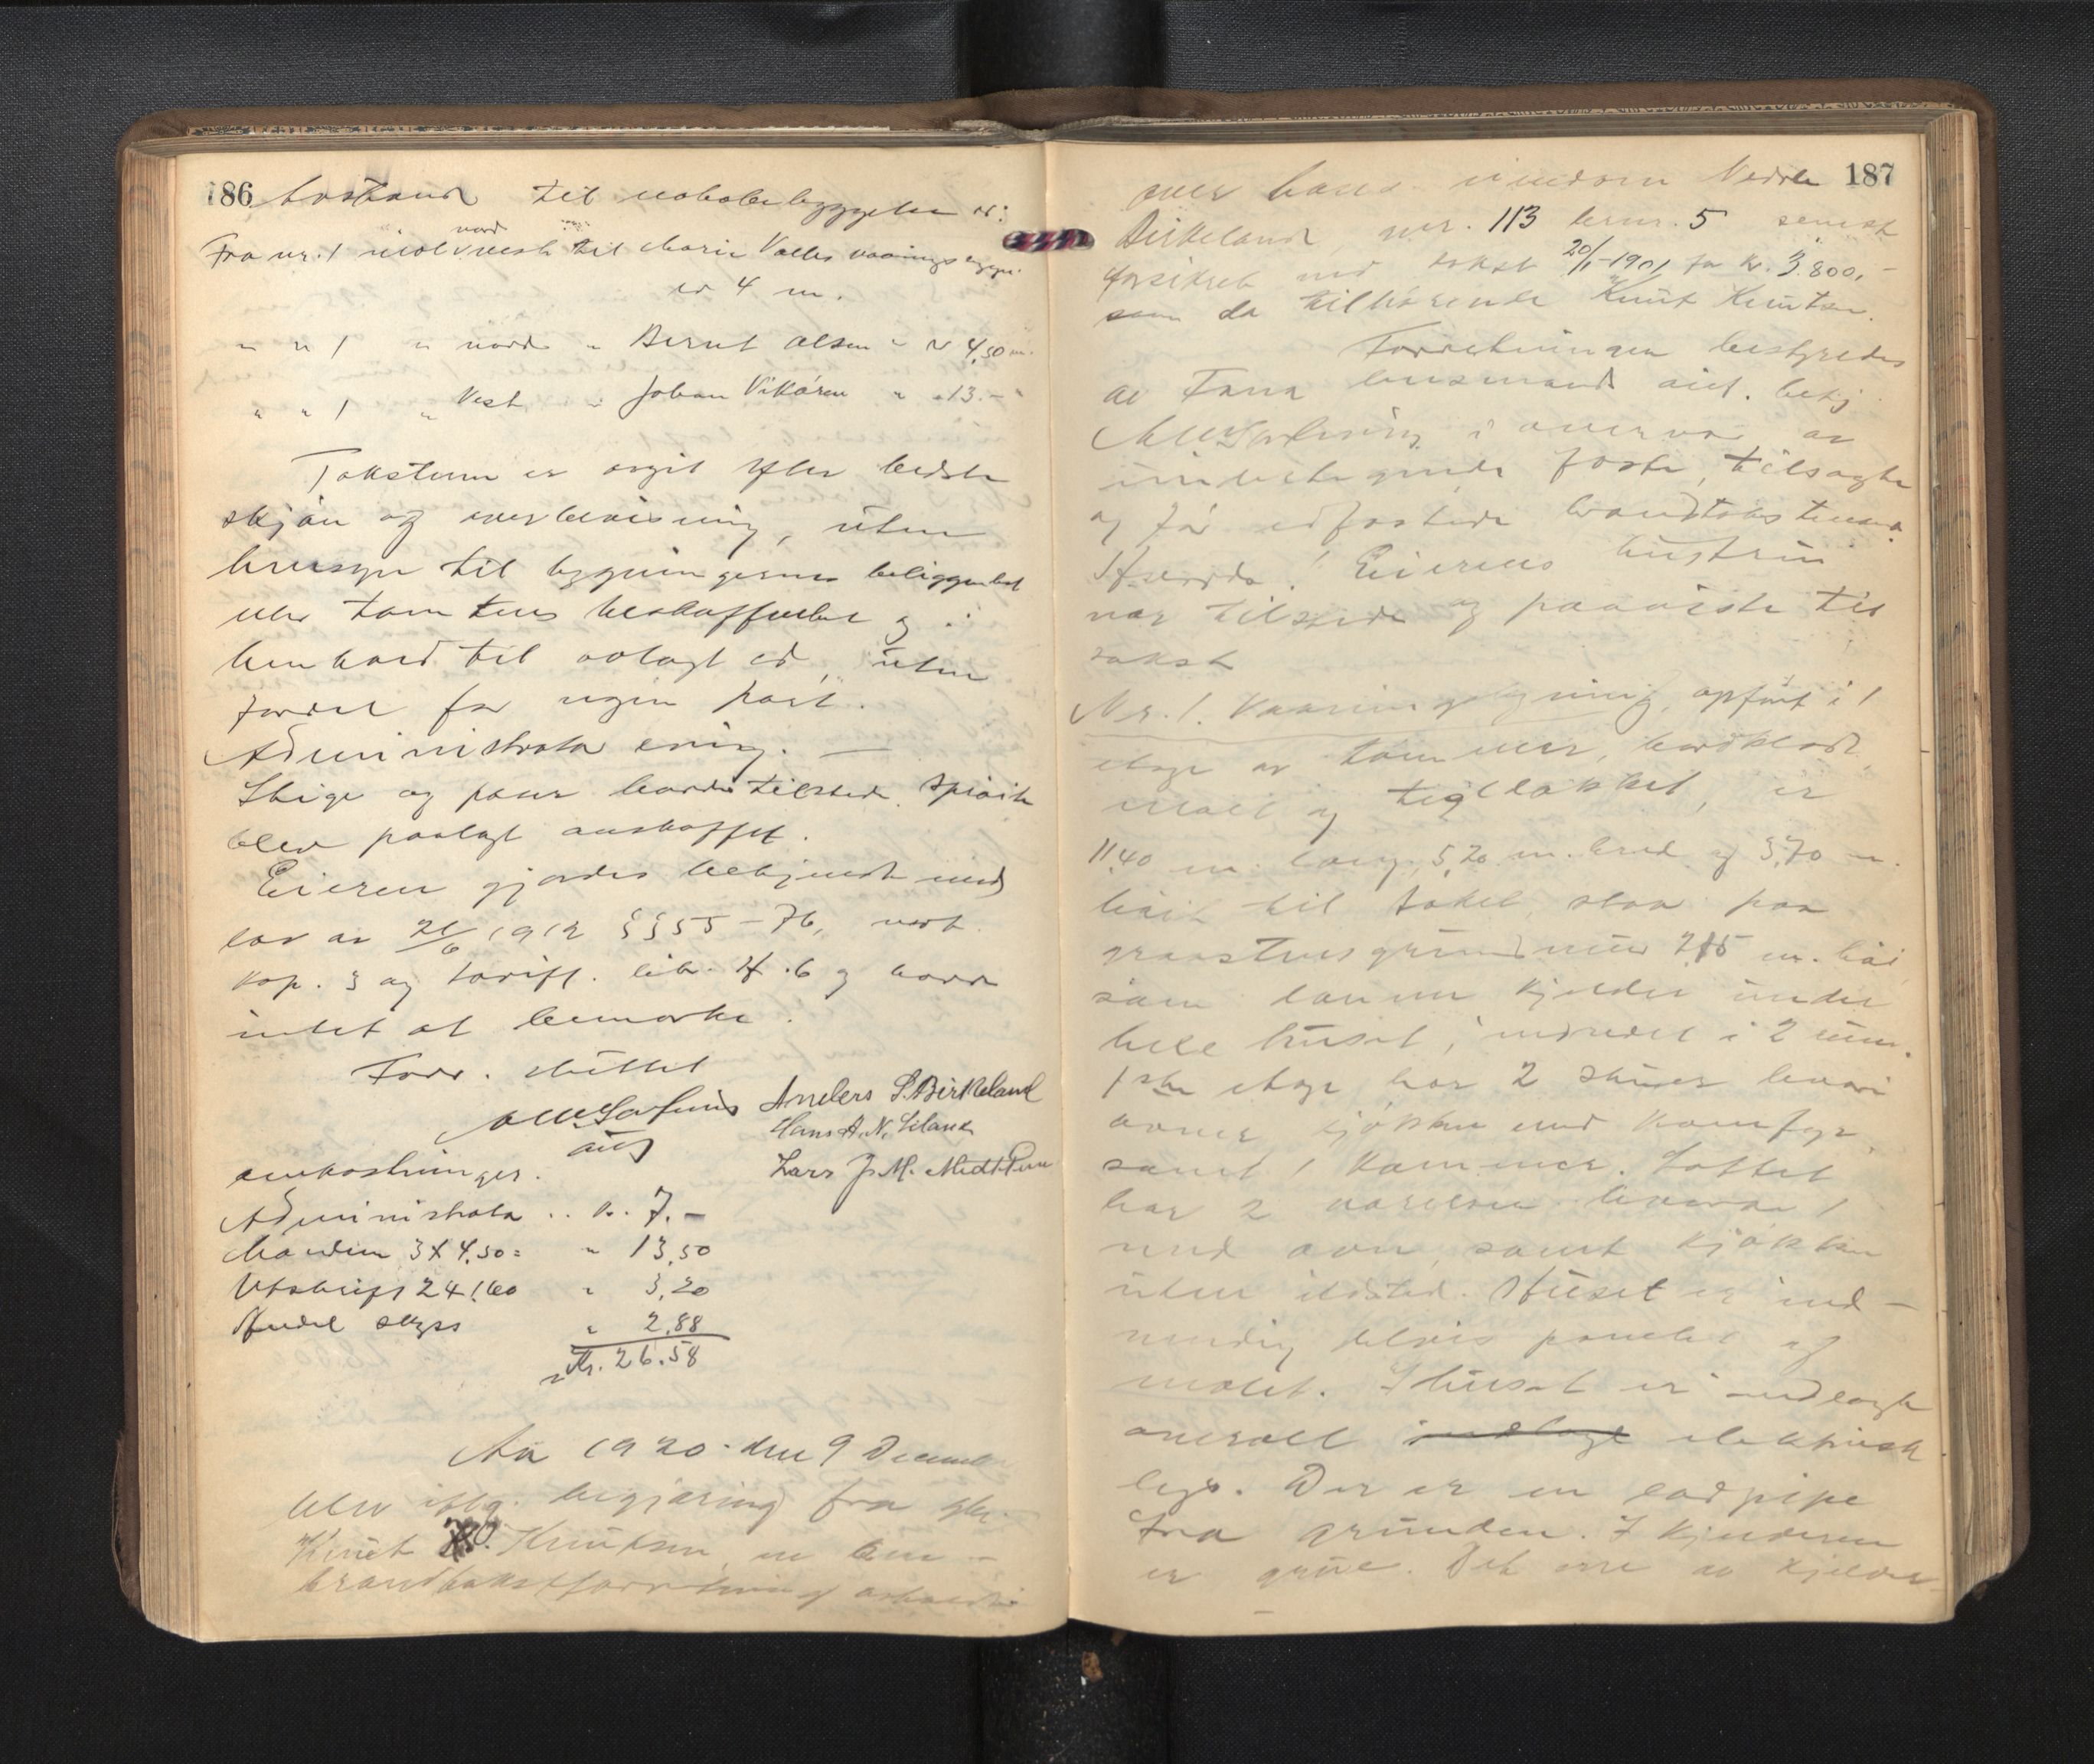 186
Avstand til nabobebyggelse er:
nord
Fra nr. 1 mot vest til Marie Valles vaaningsbygn.
er 4 m.
" " 1 " nord " Bernt Olsen " " 4,50 m.
" " 1 " Vest " Johan Vikören " " 13.-"
Taksten er avgit efter bedste
skjön og overbevisning, uten
hensyn til bygningernes beliggenhet
eller tomtens beskaffenhet og i
henhold til avlagt ed, uten
fordel for nogen part.
Administrator enig. —
Stige og
havdes tilstede.
blev paalagt anskaffet.
Eieren gjordes bekjendt med
lov av 21/6 1912 §§ 55-76, 
kap. 3 og tariff. 6 og havde
intet at bemerke.
Forr. sluttet
Anders S. Birkeland
Hans A. N. Liland
aut
Lars J. M. Midttun
Omkostninger.
Administrator .. kr. 7.-
Mænden 3 X 4,50 = " 13,50
Utskrift 2 " 3,20
Andel skyss " 2,88
Kr. 26.58
Aar 1920 den 9 December
blev iflg. begjæring fra
Knut O. Knutsen, en
brandtakstforretning avholdt
187
over hans eiendom Nedre
Birkeland, gnr. 113 brnr. 5 senest
forsikret ved takst 20/1-1901 for kr. 3.800,-
som da tilhörende Knut Knutsen.
Forretningen bestyredes
av Fana lensmand aut. betj.
i overvær av
undertegnede faste, tilsagte
og för edfæstede brandtakstmænd.
Eierens hustru
var tilstede og paaviste til
takst
Nr. 1. Vaaningsbygning, opfört i 1
etage av tömmer, bordklædt,
malt og tegltækket, er
11,40 m. lang, 5,20 m. bred og 3,70 m.
höit til taket, staar paa
graastensgrundmur 2,15 m. höi,
som danner kjelder under
hele huset, indredet i 2 rum.
1ste etage har 2 stuer hvori
ovner kjökken med komfyr,
samt 1 kammer. Loftet
har 2 værelser hvorav 1
med ovn, samt kjökken
uten ildsted. Huset er ind-
vendig delvis panelet og
malet. I huset er indlagt
overalt indlagt elektrisk
lys. Der er en
fra grunden. I kjelderen
er grue. Det ene av kjelder-